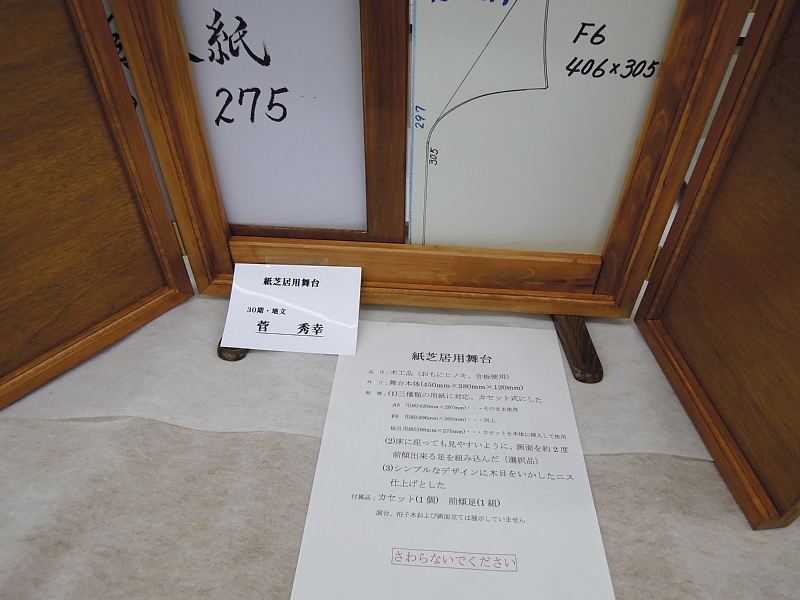 紙
275
F6
406×305
297
305
紙芝居用舞台
30期・地文
菅 秀幸
紙芝居用舞台
品 目：木工品（おもにヒノキ、合板使用）
外 寸：舞台本体(450mm×380mm×120mm)
特 徴：(1)三種類の用紙に対応、カセット式にした
A3 用紙(420mm×297mm)・・・そのまま使用
F6 用紙(406mm×305mm)・・・同上
板目用紙(398mm×275mm)・・・カセットを本体に挿入して使用
(2)床に座っても見やすいように、画面を約２度
前傾出来る足を組み込んだ（選択品）
(3)シンプルなデザインに木目をいかしたニス
仕上げとした
付属品：カセット(１個) 前傾足(１組)
演台、拍子木および画面立ては展示していません
さわらないでください